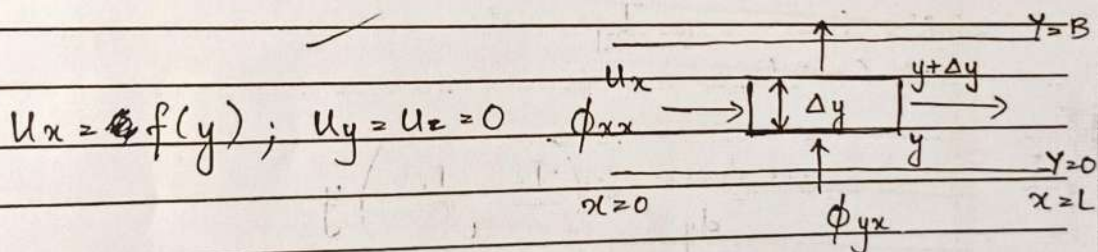 Y=B
Ux
y+Δy
Ux = f(y) ; Uy = Uz = 0
ϕxx
Δy
y
Y=0
x=0
x=L
ϕyx